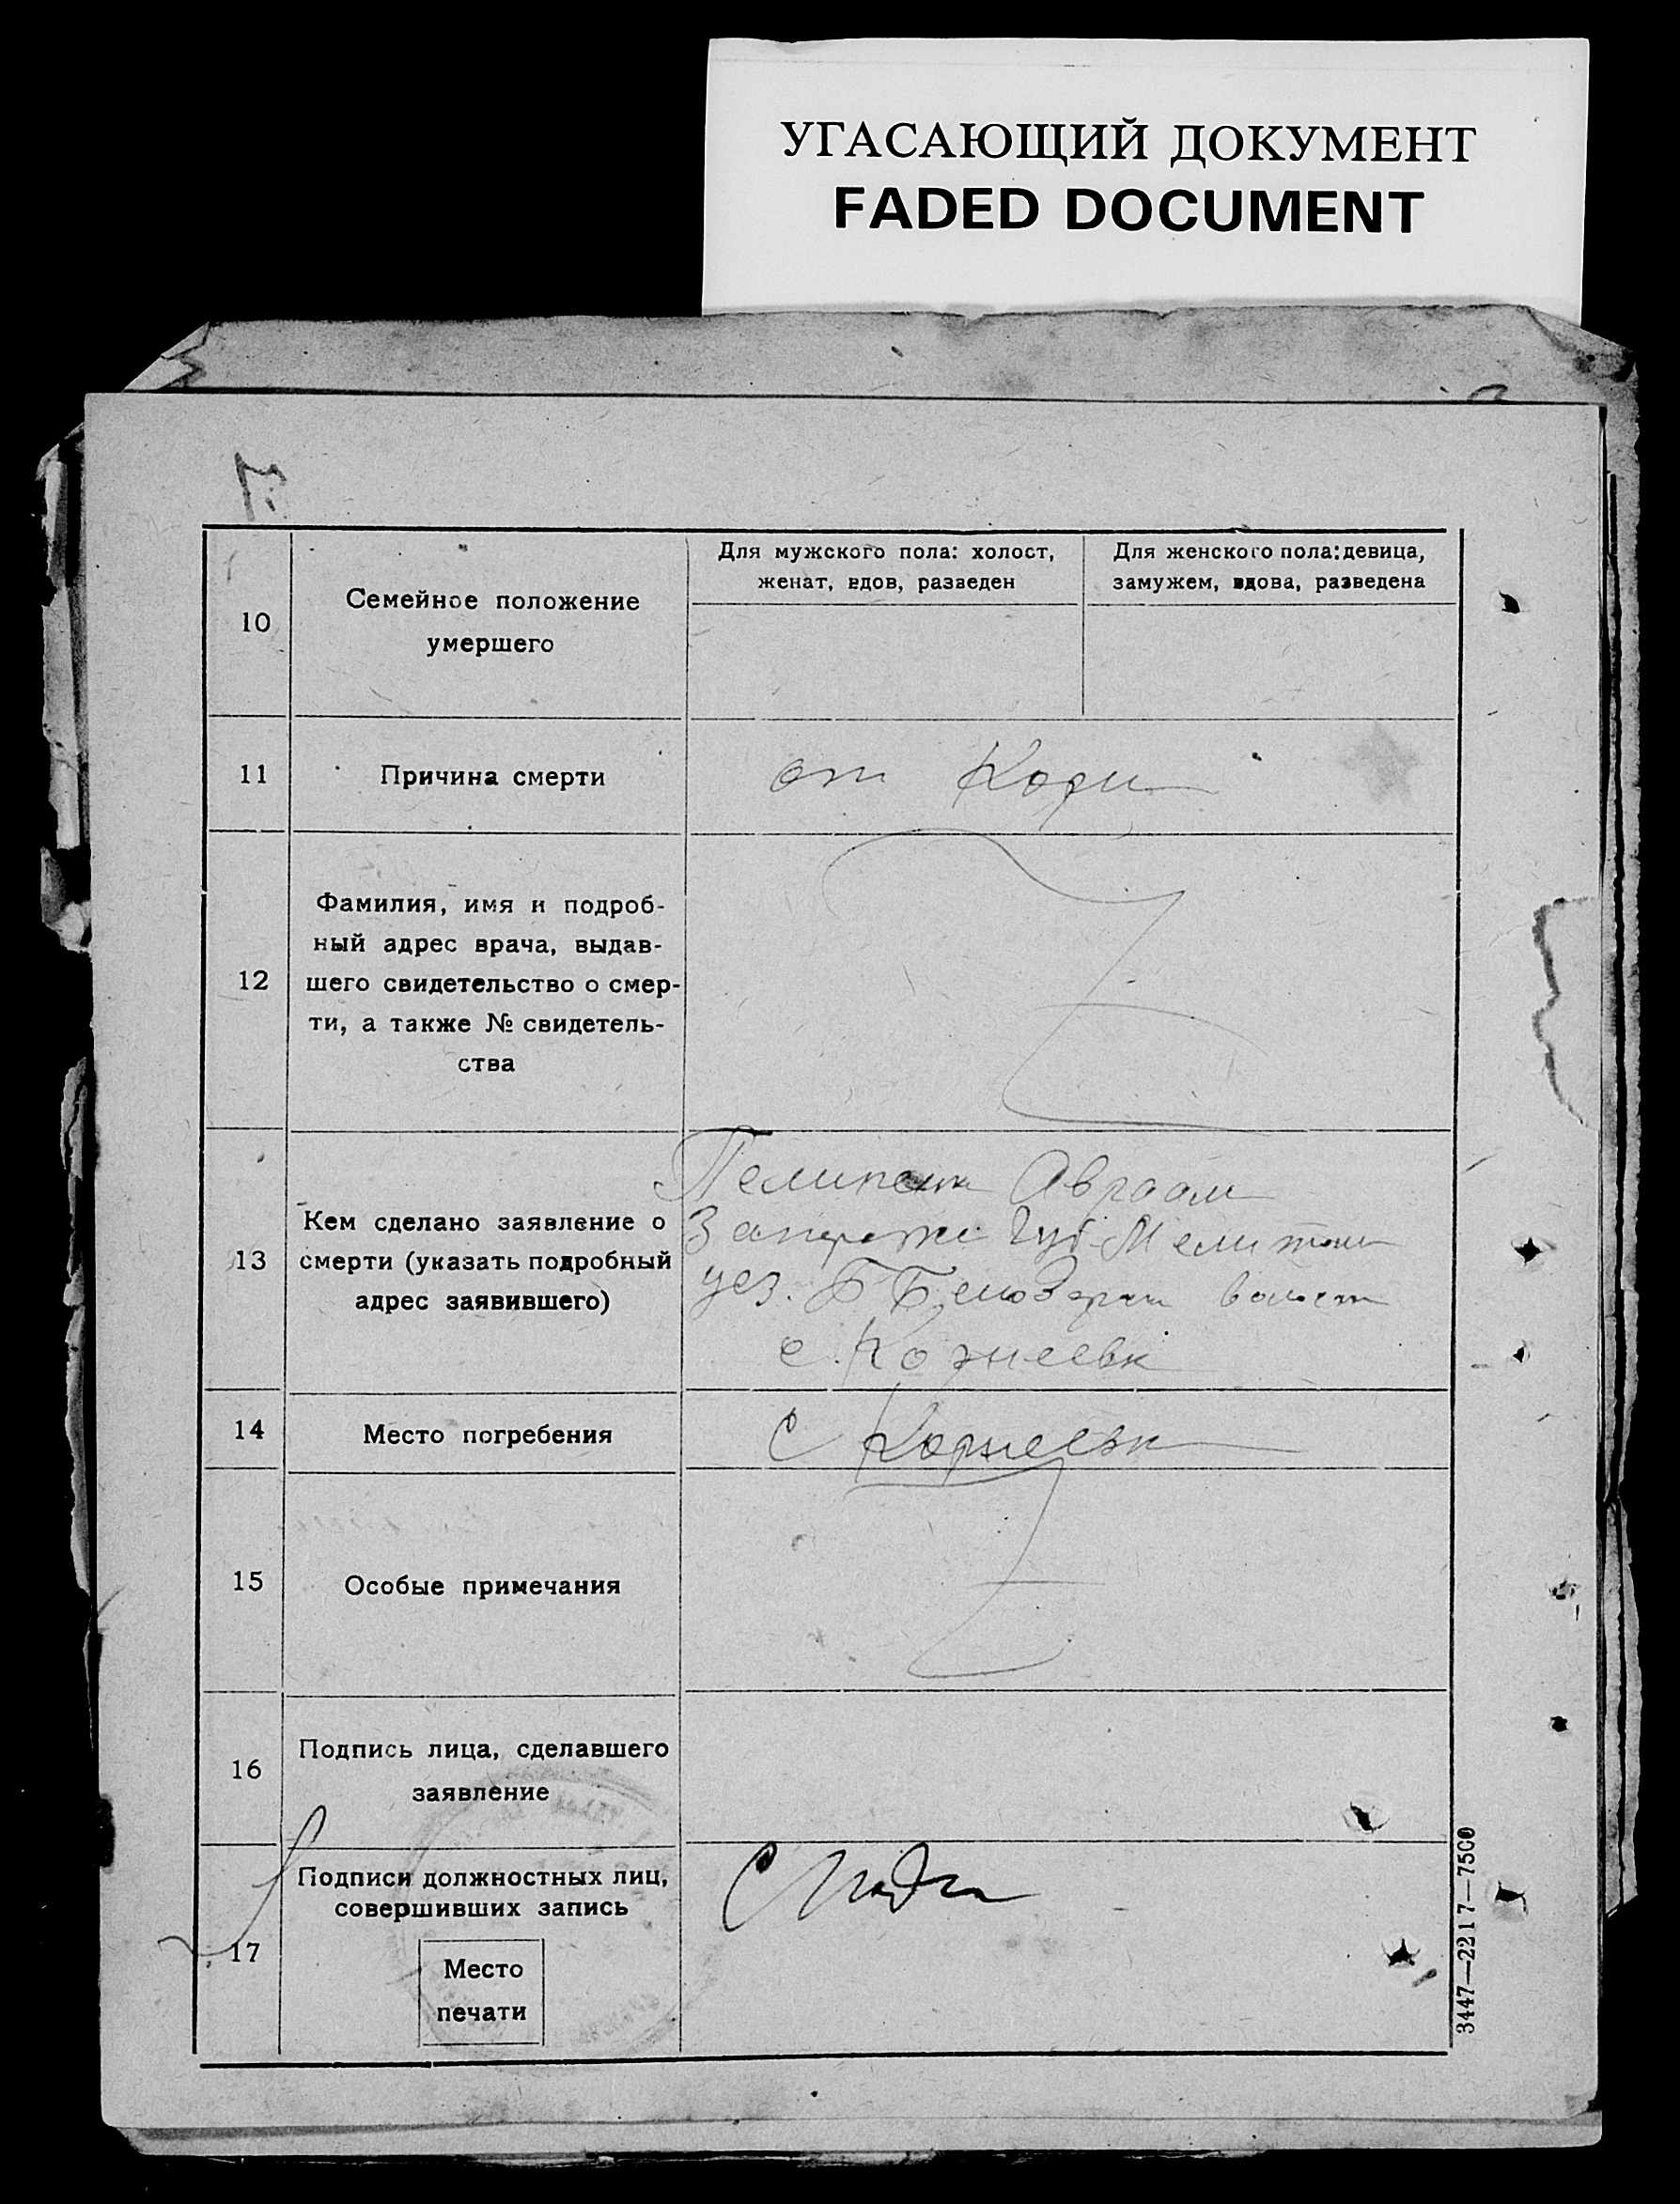 УГАСАЮЩИЙ ДОКУМЕНТ
FADED DOCUMENT
10
Семейное положение
умершего
Для мужского пола: холост,
женат, вдов, разведен
Для женского пола: девица,
замужем, вдова, разведена
11
Причина смерти
от Кори
12
Фамилия, имя и подроб-
ный адрес врача, выдав-
шего свидетельство о смер-
ти, а также № свидетель-
ства
13
Кем сделано заявление о
смерти (указать подробный
адрес заявившего)
Авраам
Губ
уез. Б
с. Корнеевк
14
Место погребения
С Корнеевк
15
Особые примечания
16
Подпись лица, сделавшего
заявление
17
Подписи должностных лиц,
совершивших запись
Место
печати
3447—2217—7500